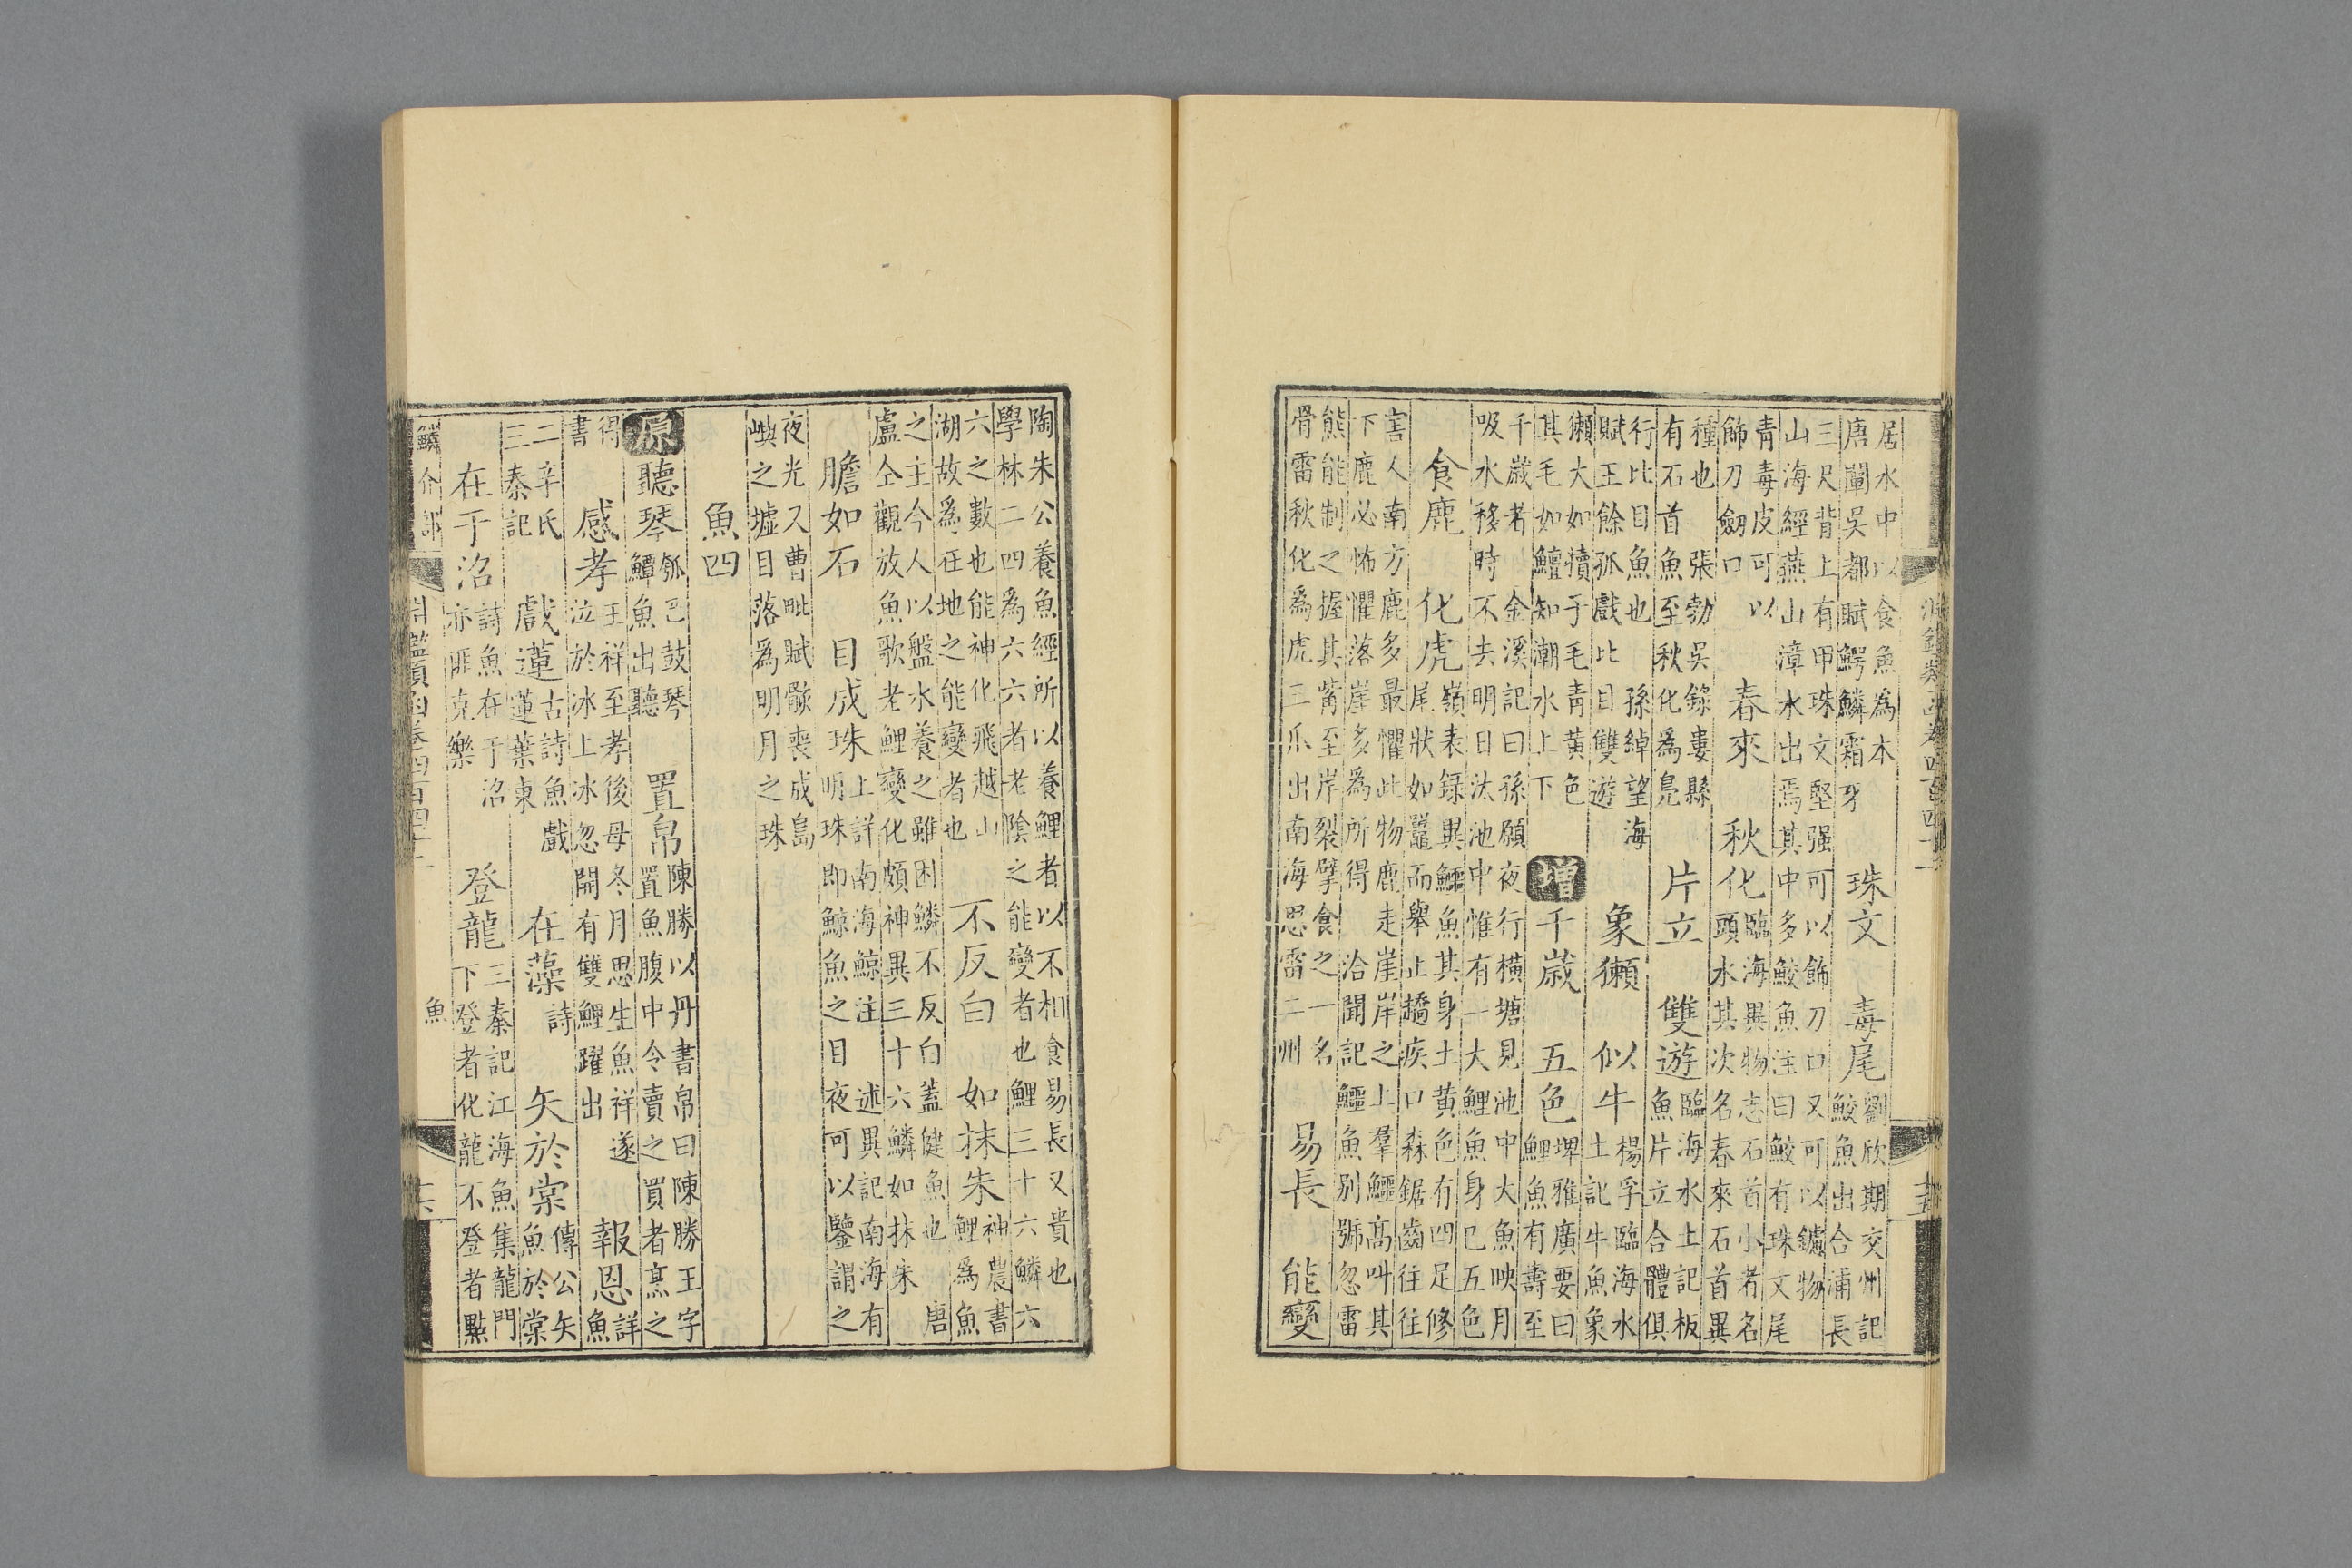 淵鑑類函卷四百四十一
十五
居水中以食魚為本
唐闡吳都賦鰐鱗霜牙
珠文 毒尾
劉欣期交州記
鮫魚出合浦長
三尺背上有甲珠文堅强可以飾刀口又可以鑢物
山海經燕山漳水出焉其中多鮫魚注曰鮫有珠文尾
青毒皮可以
飾刀劒口
春來 秋化
臨海異物志石首小者名
頭水其次名春來石首異
種也 張勃吳錄婁縣
有石首魚至秋化為鳧
片立 雙遊
臨海水上記板
魚片立合體俱
行比目魚也 孫綽望海
賦王餘孤戲比目雙遊
象獺 似牛
楊孚臨海水
土記牛魚象
獺大如犢子毛青黃色
其毛如鱣知潮水上下
增 千歲 五色
埤雅廣要曰
鯉魚有壽至
千歲者 金溪記曰孫願夜行横塘見池中大魚映月
吸水移時不去明日汰池中惟有一大鯉魚身已五色
食鹿 化虎
嶺表録異鱷魚其身土黃色有四足修
尾狀如鼉而舉止趫疾口森鋸齒往往
害人南方鹿多最懼此物鹿走崖岸之上羣鱷髙呌其
下鹿必怖懼落崖多為所得 洽聞記鱷魚别號忽雷
熊能制之握其觜至岸裂擘食之一名
骨雷秋化為虎三爪出南海思雷二州
易長 能變
陶朱公養魚經所以養鯉者以不相食易長又貴也
學林二四為六六者老隂之能變者也鯉三十六鱗六
六之數也能神化飛越山
湖故為在地之能變者也
不反白 如抹朱
神農書
鯉為魚
之主今人以盤水養之雖困鱗不反白蓋健魚也 唐
盧仝觀放魚歌老鯉變化頗神異三十六鱗如抹朱
膽如石 目成珠
上詳南海鯨注 述異記南海有
明珠即鯨魚之目夜可以鑒謂之
夜光又曹毗賦骸喪成島
嶼之墟目落為明月之珠
魚四
原 聽琴
瓠巴鼓琴
鱏魚出聽
置帛
陳勝以丹書帛曰陳勝王字
置魚腹中令賣之買者烹之
得
書
感孝
王祥至孝後母冬月思生魚祥遂
泣於冰上冰忽開有雙鯉躍出
報恩
詳
魚
二辛氏
三秦記
戲蓮
古詩魚戲
蓮葉東
在藻
詩
矢於棠
傳公矢
魚於棠
在于沼
詩魚在于沼
亦匪克樂
登龍
三秦記江海魚集龍門
下登者化龍不登者點
鱗介部
淵鑑類函卷四百四十一
魚
十六